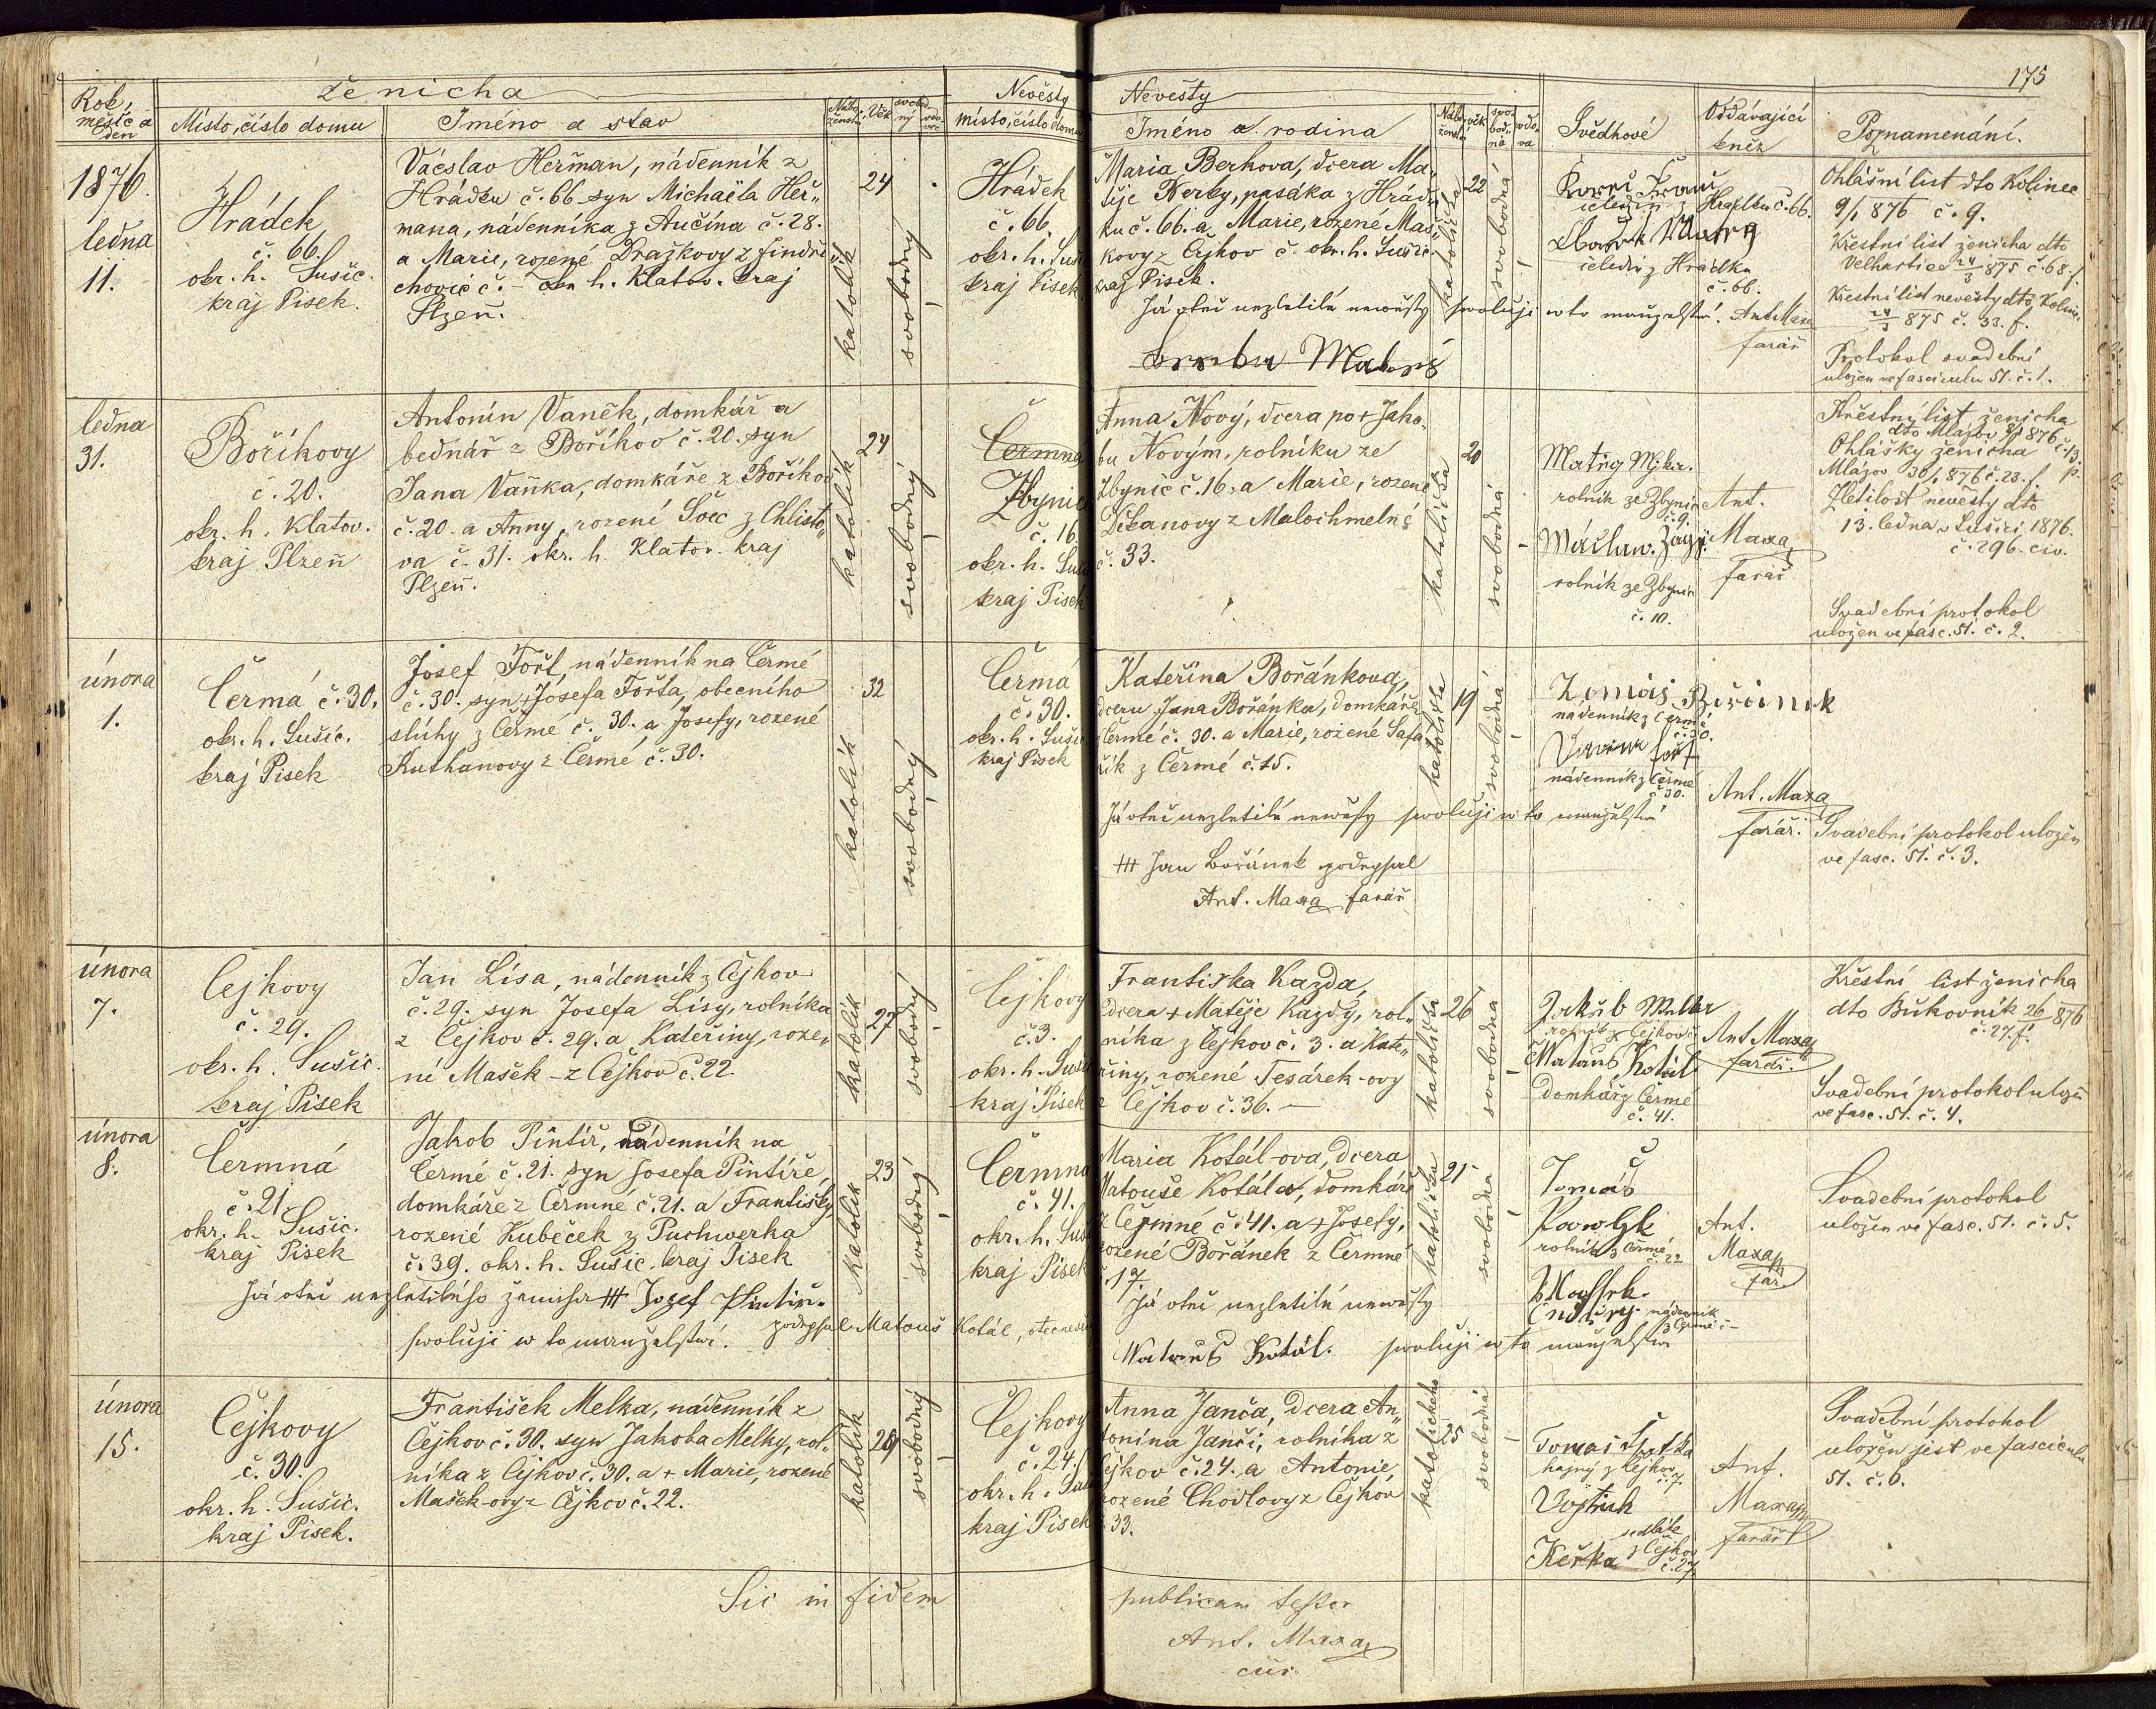 175
Rok, měsíc a den
Ženicha
Místo, číslo domu
Jméno a stav
Nábo-
ženství
Věk
svobod-
ný
vdo-
vec
Nevěsty
místo, číslo domu
Nevěsty
Jméno a rodina
Nábo-
ženství
věk
svo-
bod-
ná
vdo-
va
Svědkové
Oddávající
kněz
Poznamenání.
1876.
ledna
11.
Hrádek
č. 66.
okr. h. Sušic.
kraj Písek.
Vácslav Heřman, nádenník z
Hrádku č. 66 syn Michaela Heř„
mana, nádenníka z Aučína č. 28.
a Marie, rozené Dražkovy z Jindři„
chovic č. – okr. h. Klatov. kraj
Plzeň.
katolík
24
svobodný
Hrádek
č. 66.
okr. h. Suši
kraj Písek
Maria Berkova, dcera Ma„
těje Berky, pasáka z Hrád„
ku č. 66. a Marie, rozené Maš„
kovy z Čejkov č. okr. h. Sušic
kraj Písek.
Já otec nezletilé nevěsty svoluji v to manželství.
katolička
22
svobodná
čeledín z Hrádku č. 66.
čeledín z Hrádku
č. 66.
Ant. Maxa
farář
Ohlášní list dto Kolinec
9/1 876 č. 9.
Křestní list ženicha dto
Velhartice 24/3 875 č. 68. f.
Křestní list nevěsty dto Kolinec
24/3 875 č. 33. f.
Protokol svadební
uložen ve fasciculu 51. č. 1.
ledna
31.
Bořikovy
č. 20.
okr. h. Klatov.
kraj Plzeň
Antonín Vaněk, domkář a
bednář z Bořikov č. 20. syn
Jana Vaňka, domkáře z Bořikov
č. 20. a Anny, rozené Šocc z Chlisto„
va č. 31. okr. h. Klatov. kraj
Plzeň.
katolík
24
svobodný
Čermná
Zbynice
č. 16.
okr. h. Suši
kraj Písek
Anna Nový, dcera po + Jako„
bu Novým, rolníku ze
Zbynic č. 16. a Marie, rozené
Děkanovy z Malochmelné
č. 33.
katolička
20
svobodná
rolník ze Zbynic
č. 9.
rolník ze Zbynic
č. 10.
Ant.
Maxa
farář
Křestní list ženicha
dto Mlázov 8/1 876 č. 13.
Ohlášky ženicha
Mlázov 30/1 876 č. 23. f.
Zletilost nevěsty dto
13. ledna Sušici 1876.
č. 296. civ.
Svadební protokol
uložen ve fasc. 51. č. 2.
února
1.
Čermá č. 30.
okr. h. Sušic.
kraj Písek
Josef Fořt, nádenník na Čermé
č. 30. syn + Josefa Fořta, obecního
slúhy z Čermé č. 30. a Josefy, rozené
Kuthanovy z Čermé č. 30.
katolík
32
svobodný
Čermá
č. 30.
okr. h. Sušic
kraj Písek
Kateřina Bořánkova,
dcera Jana Bořánka, domkáře
Čermé č. 30. a Marie, rozené Šafa
řík z Čermé č. 15.
Já otec nezletilé nevěsty svoluji v to manželství
+++ Jan Bořánek podepsal
Ant. Maxa farář
katolička
19
svobodná
Tomáš Bořánek
nádenník z Čermé
č. 30.
nádenník z Čermé
č. 30.
Ant. Maxa
farář.
Svadební protokol uložen
ve fasc. 51. č. 3.
února
7.
Čejkovy
č. 29.
okr. h. Sušic.
kraj Písek
Jan Lísa, nádenník z Čejkov
č. 29. syn Josefa Lísy, rolníka
z Čejkov č. 29. a Kateřiny, roze„
né Mašek – z Čejkov č. 22.
katolík
27
svobodný
Čejkovy
č. 3.
okr. h. Suši
kraj Písek
Františka Kazda,
dcera + Matěje Kazdy, rol„
níka z Čejkov č. 3. a Kate„
řiny, rozené Tesárek-ovy
z Čejkov č. 36. –
katolička
26
svobodná
Jakub Melka
rolník z Čejkov č.
Matouš Kotál
domkář z Čermé
č. 41.
Ant. Maxa
farář.
Křestní list ženicha
dto Bukovník 26/1 876
č. 27. f.
Svadební protokol ulož
ve fasc. 51. č. 4.
února
8.
Čermná
č. 21.
okr. h. Sušic.
kraj Písek
Jakob Pintíř, nádenník na
Čermé č. 21. syn Josefa Pintíře,
domkáře z Čermné č. 21. a Františky,
rozené Kubeček z Puchwerka
č. 39. okr. h. Sušic. kraj Písek
Já otec nezletilého ženicha +++ Josef Pintíř.
svoluji v to manželství.
podepsal Matouš Kotál, otec nevěs
katolík
23
svobodný
Čermná
č. 41.
okr. h. Suš
kraj Písek
Maria Kotál-ova, dcera
Matouše Kotála, domkáře
z Čermné č. 41. a + Josefy,
rozené Bořánek z Čermné
č. 17.
Já otec nezletilé nevěsty
Matouš Kotál. svoluji v to manželství
katolička
21
svobodná
Tomáš
rolník z Čermé
č. 22
nádenník
z Čermé č –
Ant.
Maxa
far
Svadební protokol
uložen ve fasc. 51. č. 5.
února
15.
Čejkovy
č. 30.
okr. h. Sušic.
kraj Písek.
František Melka, nádenník z
Čejkov č. 30. syn Jakoba Melky, rol„
níka z Čejkov č. 30. a + Marie, rozené
Mašek-ovy z Čejkov č. 22.
katolík
svobodný
Čejkovy
č. 24.
okr. h. Suš
kraj Písek
Anna Janča, dcera An„
tonína Janči, rolníka z
Čejkov č. 24. a Antonie,
rozené Chodlovy z Čejkov
č. 33.
25
svobodná
hajný z Čejkov
č. 7.
Vojtěch
Keřka
sedlák
z Čejkov
č. 27.
Ant.
Maxa
farář
Svadební protokol
uložen jest ve fasciculu
51. č. 6.
Sic in fidem publicam testor
Ant. Maxa
cur.